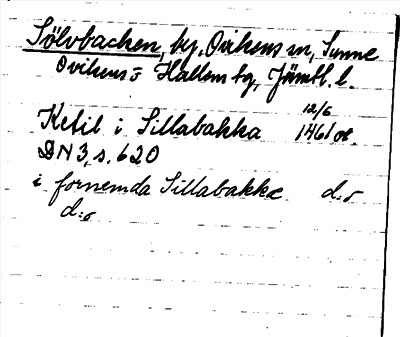 Sölvbacken, by, Ovikens sn, Sunne
Ovikens o Hallens tg, Jämtl. l.
12/6
Ketil i Sillabakka 1461 or.
DN 3, s. 620
i fornemda Sillabakka d:o
d:o